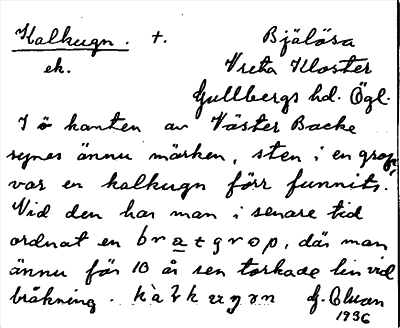 Kalkugn. +. Bjälösa
ek. Vreta Kloster
Gullbergs hd. Ögl.
I ö kanten av Väster Backe
synes ännu märken, sten i en grop,
var en kalkugn förr funnits.
Vid den har man i senare tid
ordnat en bratgrop, där man
ännu för 10 år sen torkade lin vid
bråkning.
1936